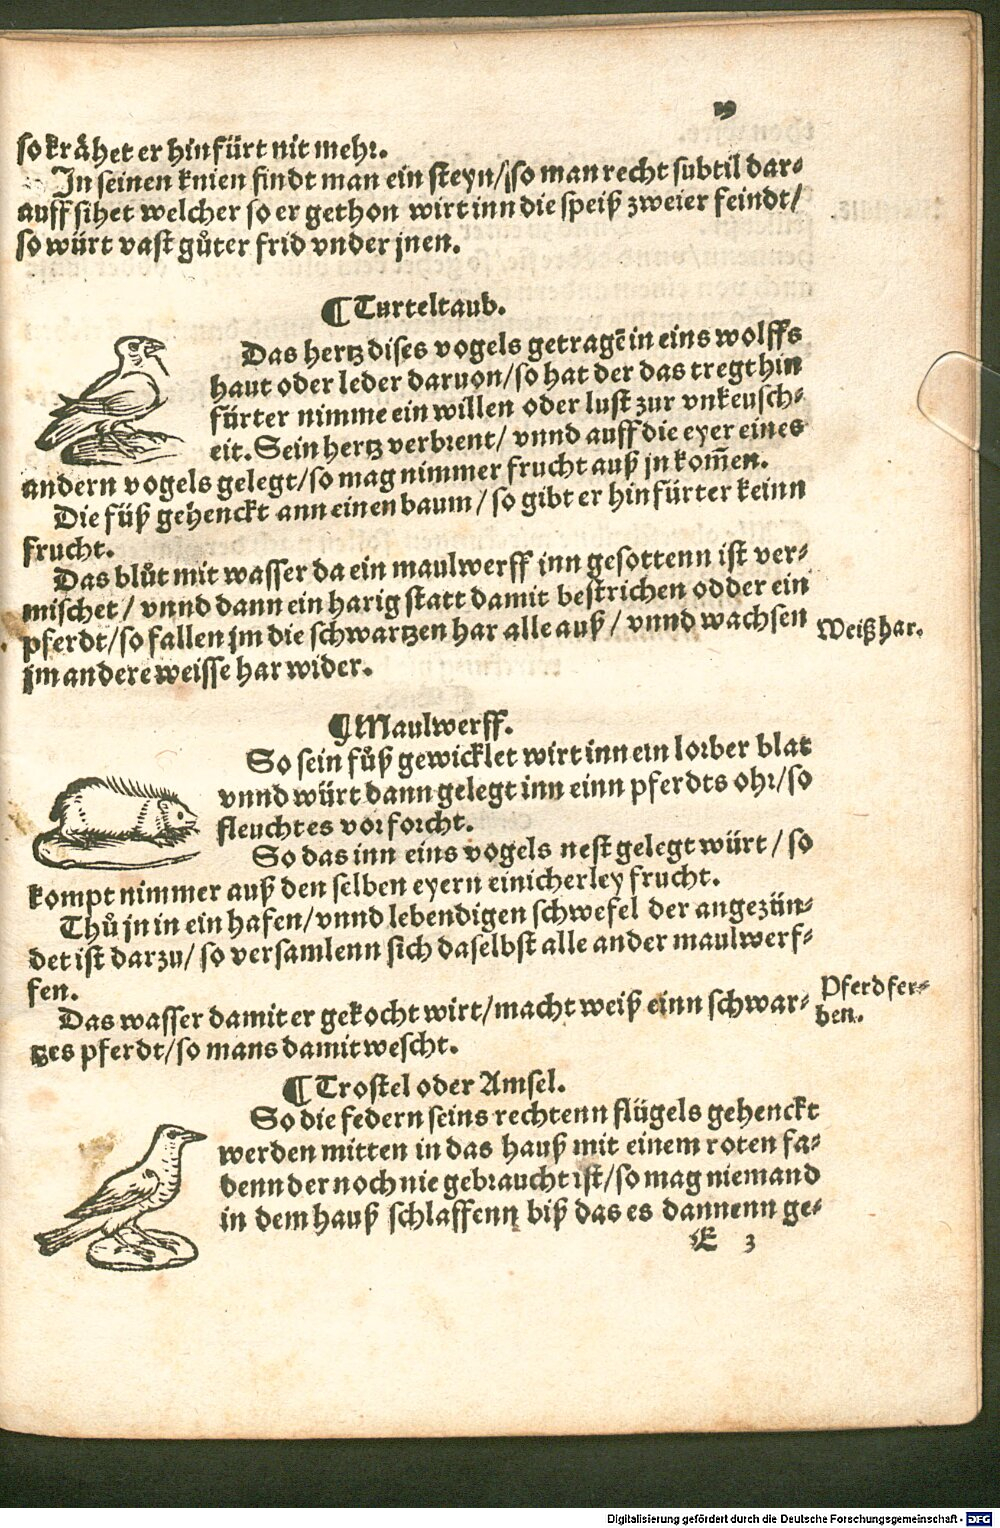 19
so kråhet er hinfürt nit mehr.
In seinen knien findt man ein steyn/ so man recht subtil dar⸗
auff sihet welcher so er gethon wirt inn die speiß zweier feindt/
so würt vast gůter frid vnder jnen.
¶Turteltaub.
Das hertz dises vogels getragē in eins wolffs
haut oder leder daruon/ so hat der das tregt hin
fürter nimme ein willen oder lust zur vnkeusch⸗
eit. Sein hertz verbrent/ vnnd auff die eyer eines
andern vogels gelegt/ so mag nimmer frucht auß jn kom̄en.
Die füß gehenckt ann einen baum/ so gibt er hinfürter keinn
frucht.
Das blůt mit wasser da ein maulwerff inn gesottenn ist ver⸗
mischet/ vnnd dann ein harig statt damit bestrichen odder ein
pferdt/ so fallen jm die schwartzen har alle auß/ vnnd wachsen
Weiß har.
jm andere weisse har wider.
¶Maulwerff.
So sein fůß gewicklet wirt inn ein lorber blat
vnnd würt dann gelegt inn einn pferdts ohr/ so
fleucht es vor forcht.
So das inn eins vogels nest gelegt würt/ so
kompt nimmer auß den selben eyern einicherley frucht.
Thů jn in ein hafen/ vnnd lebendigen schwefel der angezün⸗
det ist darzu/ so versamlenn sich daselbst alle ander maulwerf⸗
fen.
Das wasser damit er gekocht wirt/ macht weiß einn schwar⸗
Pferd fer⸗
ben.
tzes pferdt/ so mans damit wescht.
¶Trostel oder Amsel.
So die federn seins rechtenn flügels gehenckt
werden mitten in das hauß mit einem roten fa⸗
denn der noch nie gebraucht ist/ so mag niemand
in dem hauß schlaffenn biß das es dannenn ge⸗
E 3
Digitalisierung gefördert durch die Deutsche Forschungsgemeinschaft - DFG